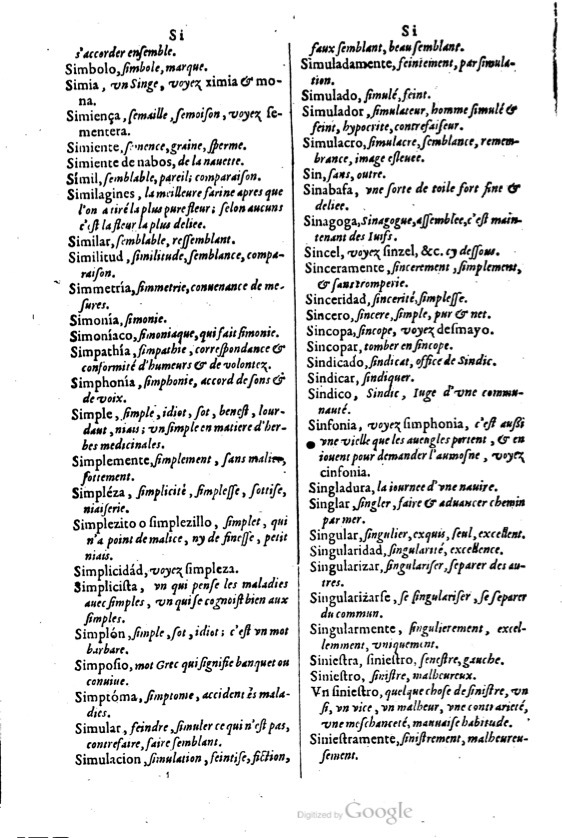 Si
s'accorder ensemble.
Simbolo, ſimbole, marque.
Simia, vn Singe, voyez ximia & mo-
na.
Simiença, ſemaille, ſemoiſon, voyez ſe-
mentera.
Simiente, ſemence, graine, ſperme.
Simiente de nabos, de la nauette.
Símil, ſemblable, pareil; comparaiſon.
Similagines, la meilleure farine apres que
l'on a tiré la plus pure fleur; ſelon aucuns
c'eſt la fleur la plus deliee.
Similar, ſemblable, reſſemblant.
Similitud, ſimilitude, ſemblance, compa-
raiſon.
Simmetría, ſimmetrie, conuenance de me-
ſures.
Simonía, ſimonie.
Simoníaco, ſimoniaque, qui fait ſimonie.
Simpathía, ſimpathie, correſpondance &
conformité d'humeurs & de volontez.
Simphonía, ſimphonie, accord de ſons &
de voix.
Simple, ſimple, idiot, ſot, beneſt, lour-
daut, niais; vn ſimple en matiere d'her-
bes medicinales.
Simplemente, ſimplement, ſans malice,
ſottement.
Simpléza, ſimplicité, ſimpleſſe, ſottiſe,
niaiſerie.
Simplezito o ſimplezillo, ſimplet, qui
n'a point de malice, ny de fineſſe, petit
niais.
Simplicidád, voyez ſimpleza.
Simpliciſta, vn qui penſe les maladies
auec ſimples, vn qui ſe cognoiſt bien aux
ſimples.
Simplón, ſimple, ſot, idiot; c'eſt vn mot
barbare.
Simpoſio, mot Grec qui ſignifie banquet ou
conuiue.
Simptóma, ſimptome, accident és mala-
dies.
Simular, feindre, ſimuler ce qui n'eſt pas,
contrefaire, faire ſemblant.
Simulacion, ſimulation, feintiſe, fiction,
Si
faux ſemblant, beau ſemblant.
Simuladamente, feintement, par ſimula-
tion.
Simulado, ſimulé, feint.
Simulador, ſimulateur, homme ſimulé &
feint, hypocrite, contrefaiſeur.
Simulacro, ſimulacre, ſemblance, remem-
brance, image eſleuee.
Sin, ſans, outre.
Sinabafa, vne ſorte de toile fort fine &
deliee.
Sinagoga, Sinagogue, aſſemblee, c'eſt main-
tenant des Iuifs.
Sincel, voyez ſinzel, &c. cy deſſous.
Sinceramente, ſincerement, ſimplement,
& ſans tromperie.
Sinceridad, ſincerité, ſimpleſſe.
Sincero, ſincere, ſimple, pur & net.
Sincopa, ſincope, voyez deſmayo.
Sincopar, tomber en ſincope.
Sindicado, ſindicat, office de Sindic.
Sindicar, ſindiquer.
Sindico, Sindic, Iuge d'vne commu-
nauté.
Sinfonia, voyez ſimphonia, c'eſt auſſi
vne vielle que les aueugles portent, & en
iouent pour demander l'aumoſne, voyez
cinfonia.
Singladura, la iournee d'vne nauire.
Singlar, ſingler, faire & aduancer chemin
par mer.
Singular, ſingulier, exquis, ſeul, excellent.
Singularidad, ſingularité, excellence.
Singularizar, ſingulariſer, ſeparer des au-
tres.
Singularizarſe, ſe ſingulariſer, ſe ſeparer
du commun.
Singularmente, ſingulierement, excel-
lemment, vniquement.
Sinieſtra, ſinieſtro, ſeneſtre, gauche.
Sinieſtro, ſiniſtre, malheureux.
Vn ſinieſtro, quelque choſe de ſiniſtre, vn
ſi, vn vice, vn malheur, vne contrarieté,
vne meſchanceté, mauuaiſe habitude.
Sinieſtramente, ſiniſtrement, malheureu-
ſement.
Digitized by Google